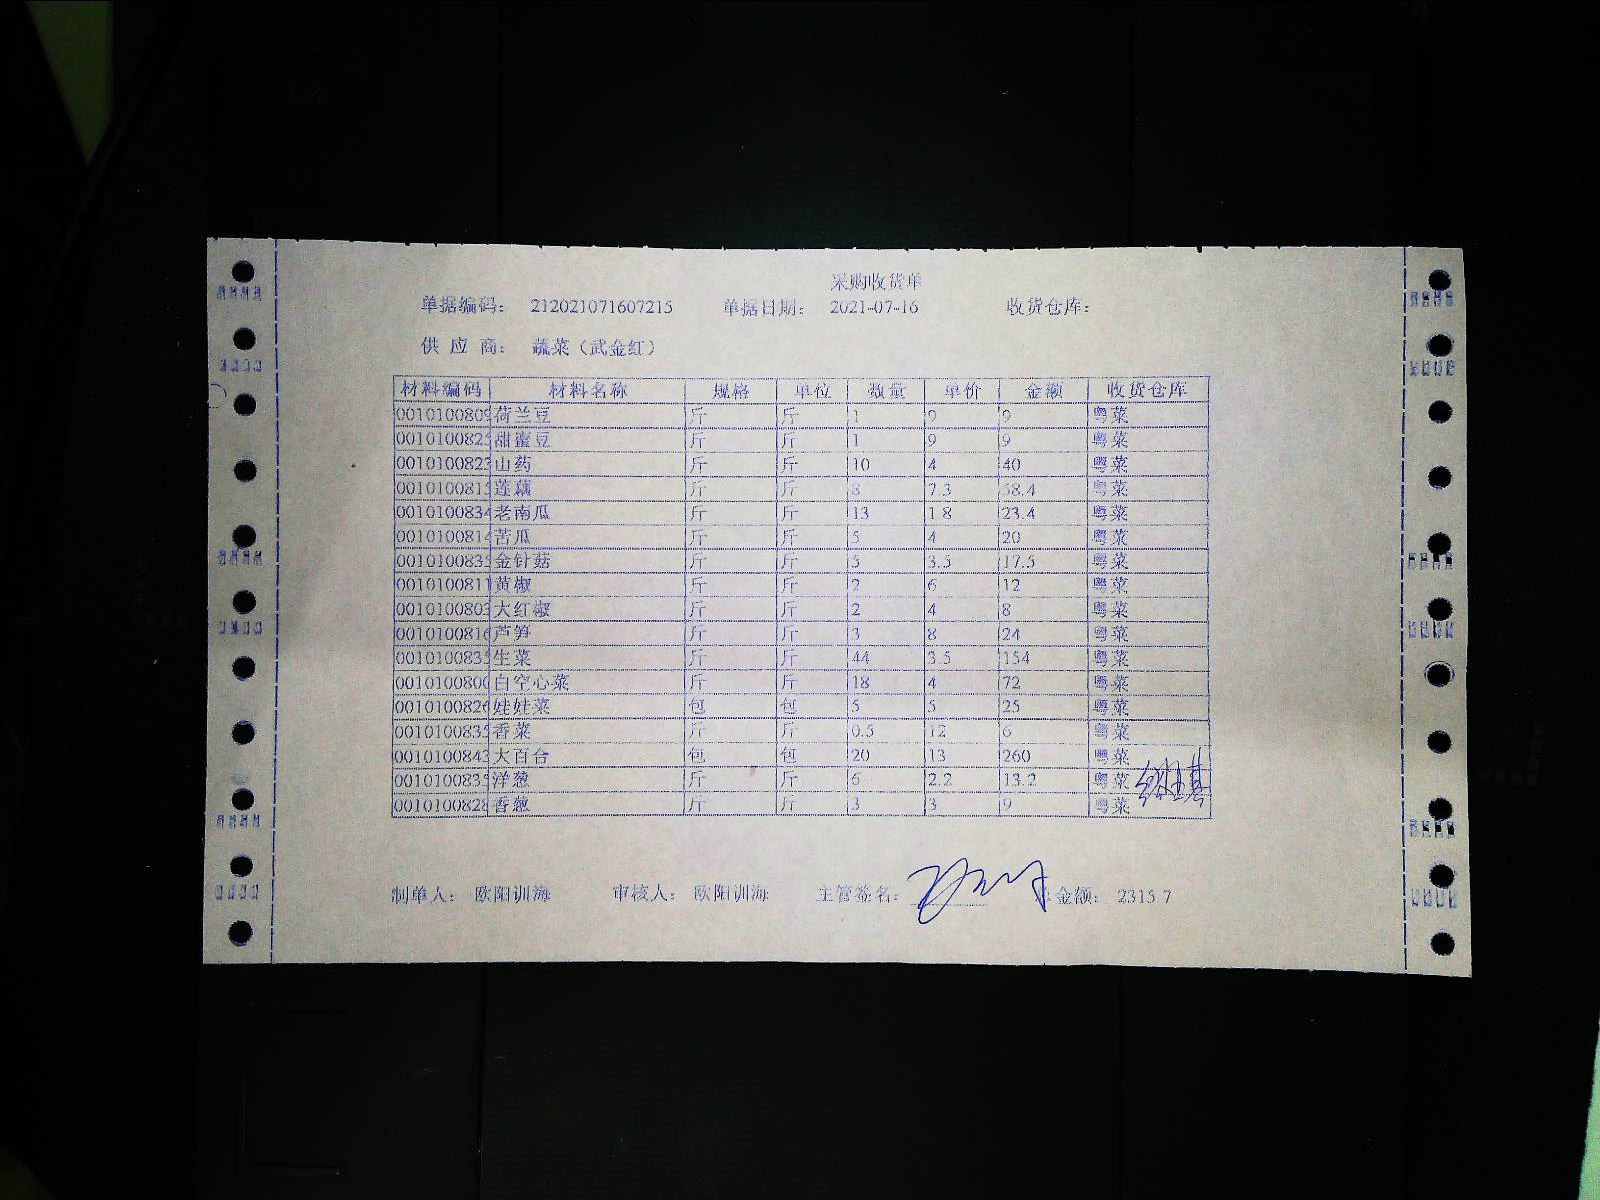 采购收货单
单据编码: 212021071607215 单据日期: 2021-07-16 收货仓库:
供 应 商: 蔬菜（武金红）
材料编码 材料名称 规格 单位 数量 单价 金额 收货仓库
0010100809 荷兰豆 斤 斤 1 9 9 粤菜
0010100825 甜蜜豆 斤 斤 1 9 9 粤菜
0010100823 山药 斤 斤 10 4 40 粤菜
0010100815 莲藕 斤 斤 8 7.3 58.4 粤菜
0010100834 老南瓜 斤 斤 13 1.8 23.4 粤菜
0010100814 苦瓜 斤 斤 5 4 20 粤菜
0010100835 金针菇 斤 斤 5 3.5 17.5 粤菜
0010100811 黄椒 斤 斤 2 6 12 粤菜
0010100803 大红椒 斤 斤 2 4 8 粤菜
0010100816 芦笋 斤 斤 3 8 24 粤菜
0010100835 生菜 斤 斤 44 3.5 154 粤菜
0010100806 白空心菜 斤 斤 18 4 72 粤菜
0010100826 娃娃菜 包 包 5 5 25 粤菜
0010100835 香菜 斤 斤 0.5 12 6 粤菜
0010100843 大百合 包 包 20 13 260 粤菜
0010100835 洋葱 斤 斤 6 2.2 13.2 粤菜
0010100828 香葱 斤 斤 3 3 9 粤菜
制单人: 欧阳训海 审核人: 欧阳训海 主管签名: 总金额: 2315.7